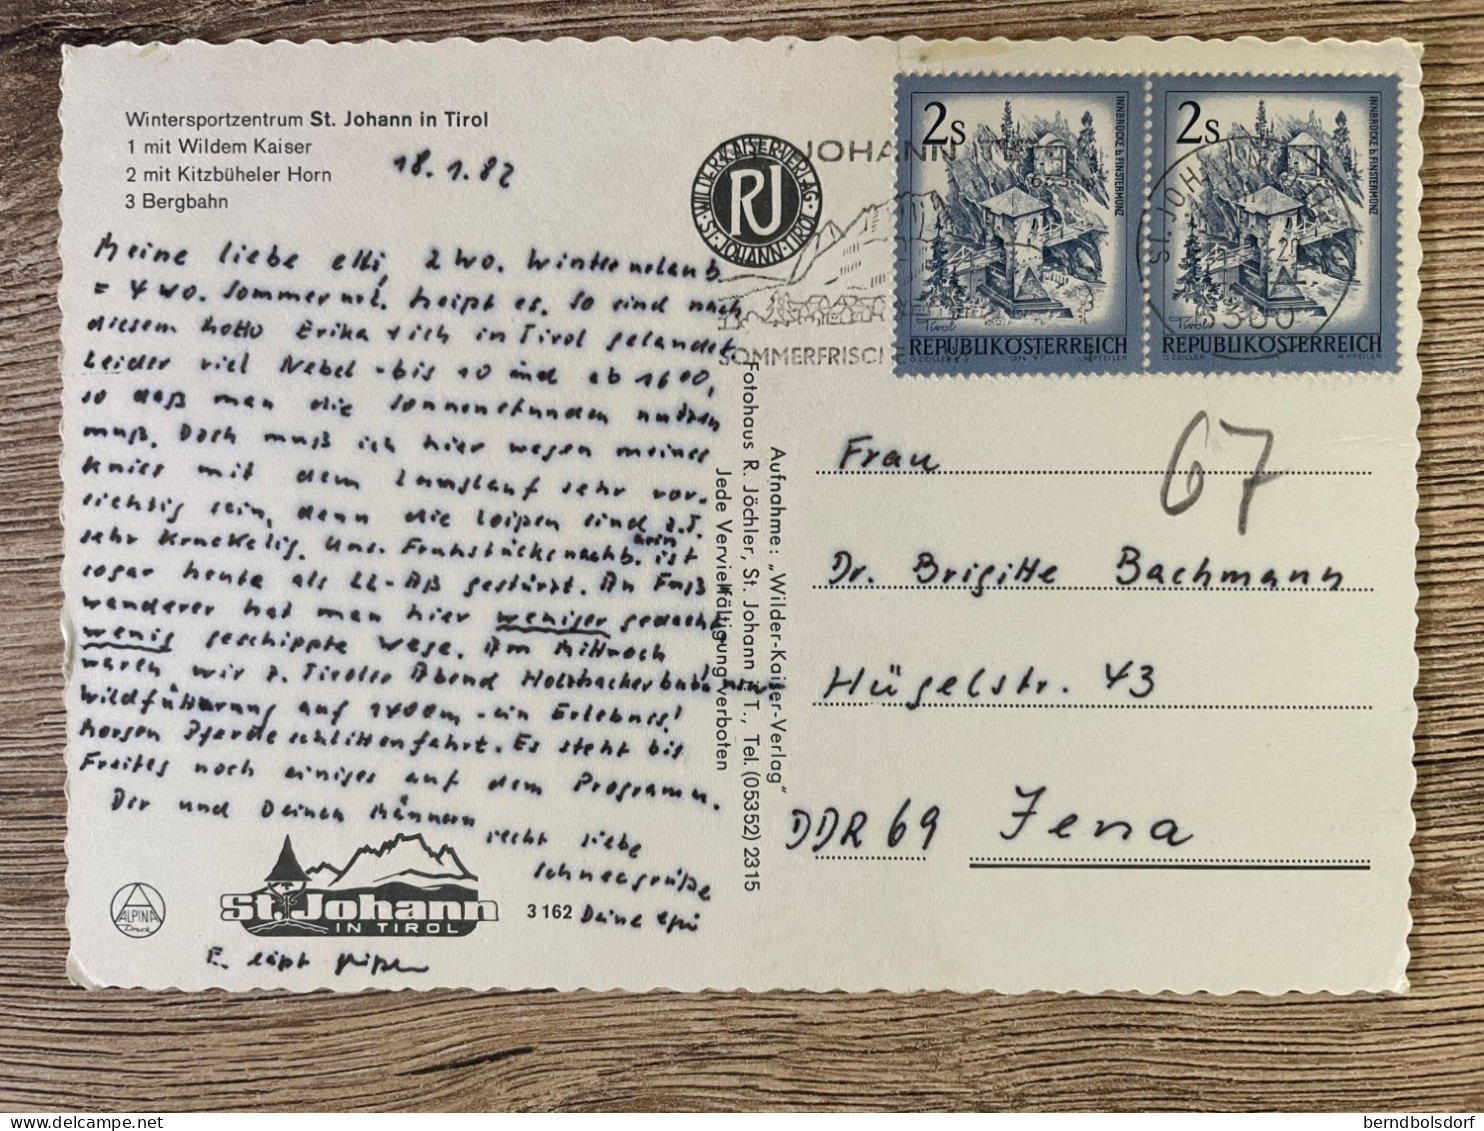 Wintersportzentrum St. Johann in Tirol
1 mit Wildem Kaiser
2 mit Kitzbüheler Horn
3 Bergbahn
18.1.82
Meine liebe elli, 2 wo. Winterurlaub
= 4 wo. Sommerurl. heißt es. So sind nach
diesem Motto Erika + ich in Tirol gelandet.
Leider viel Nebel - bis 10 und ab 1600,
so daß man die Sonnenstunden nutzen
muß. Doch muß ich hier wegen meines
Knies mit dem Langlauf sehr vor-
sichtig sein, denn die Loipen sind z.T.
sehr kruckelig. Uns. Frühstücksnachb.in ist
sogar heute als LL-Aß gestürzt. An Fuß
wanderer hat man hier weniger gedacht
wenig geschippte Wege. Am Mittwoch
waren wir z. Tiroler Abend Holzhackerbub'n
Wildfütterung auf 1400m - ein Erlebnis!
Morgen Pferdeschlittenfahrt. Es steht bis
Freitag noch einiges auf dem Programm.
Dir und Deinen Männern
recht liebe
Schneegrüße
Deine
E. läßt grüßen
ALPINA
Druck
St. Johann
IN TIROL
3 162
Aufnahme: „Wilder-Kaiser-Verlag"
Fotohaus R. Jöchler, St. Johann i. T., Tel. (05352) 2315
Jede Vervielfältigung verboten
WILDER-KAISER-VERLAG · ST. JOHANN-TIROL ·
RJ
JOHANN
SOMMERFRISCHE
2S
INNBRÜCKE b. FINSTERMÜNZ
Tirol
REPUBLIK ÖSTERREICH
2S
INNBRÜCKE b. FINSTERMÜNZ
Tirol
REPUBLIK ÖSTERREICH
ST. JOHANN
6380
67
Frau
Dr. Brigitte Bachmann
Hügelstr. 43
DDR 69 Jena
berndbolsdorf